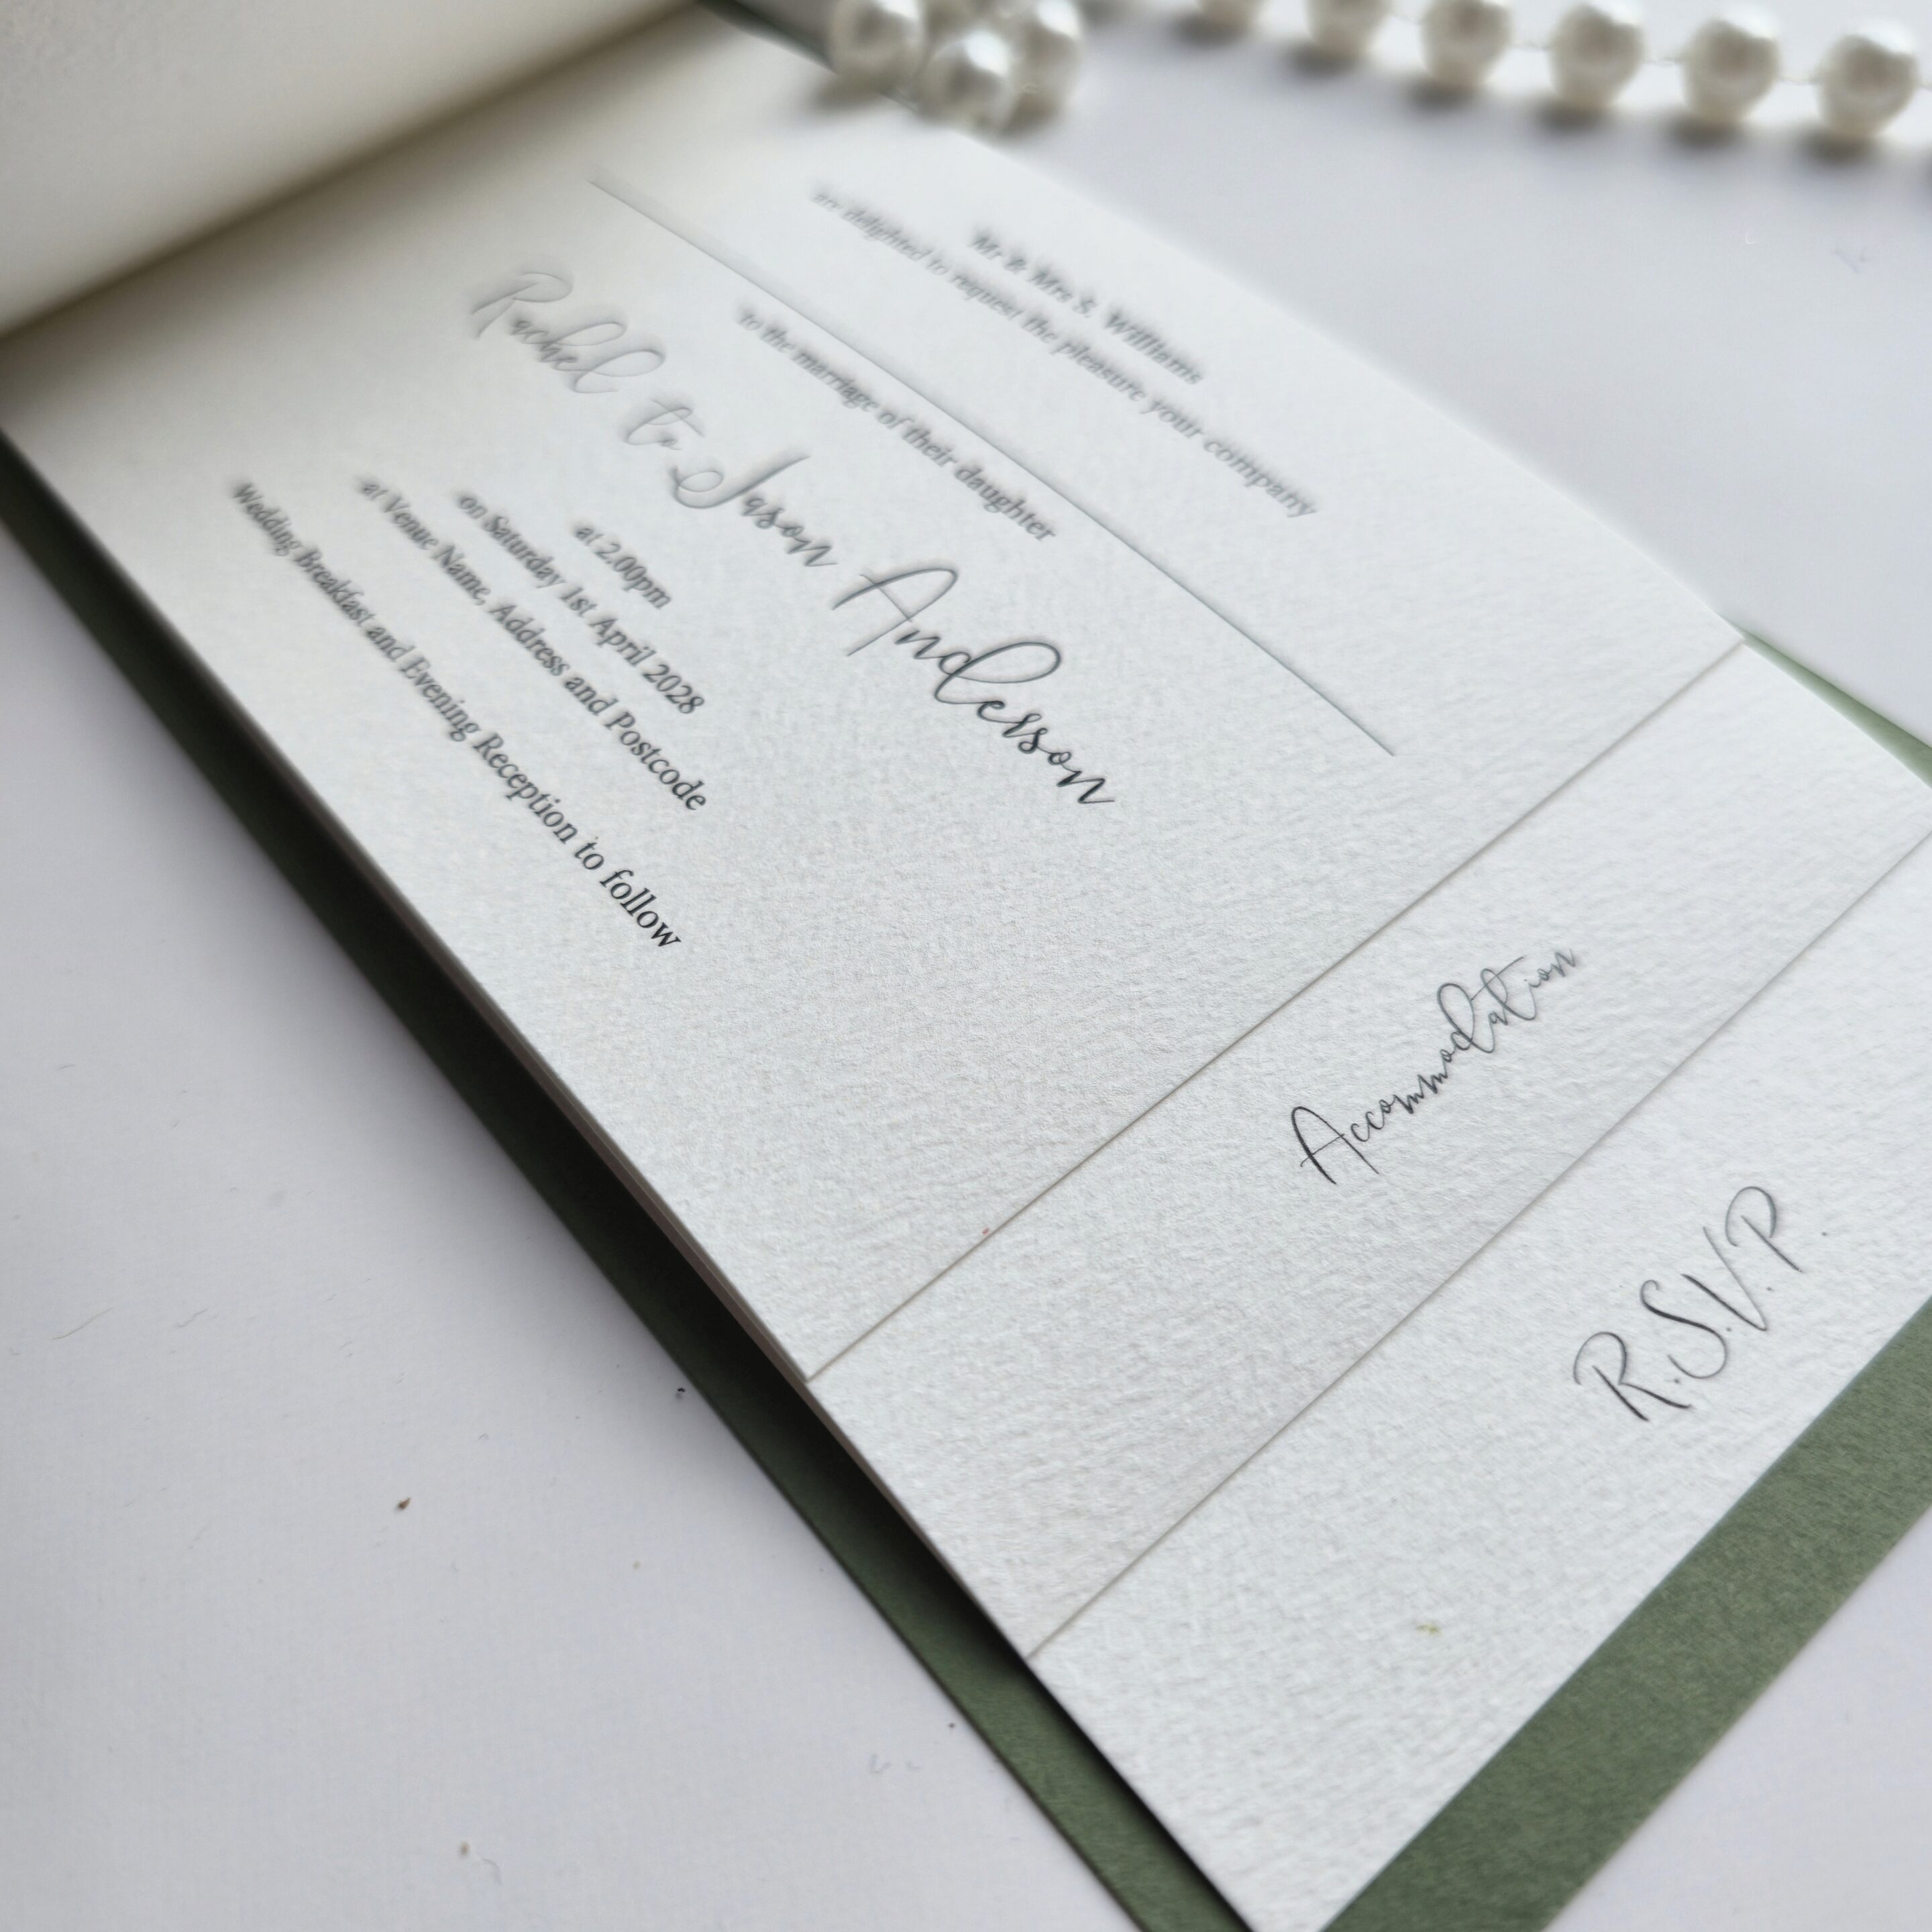 Mr & Mrs S. Williams
are delighted to request the pleasure your company
to the marriage of their daughter
Rachel to Jason Anderson
at 2.00pm
on Saturday 1st April 2028
at Venue Name, Address and Postcode
Wedding Breakfast and Evening Reception to follow
Accommodation
R.S.V.P